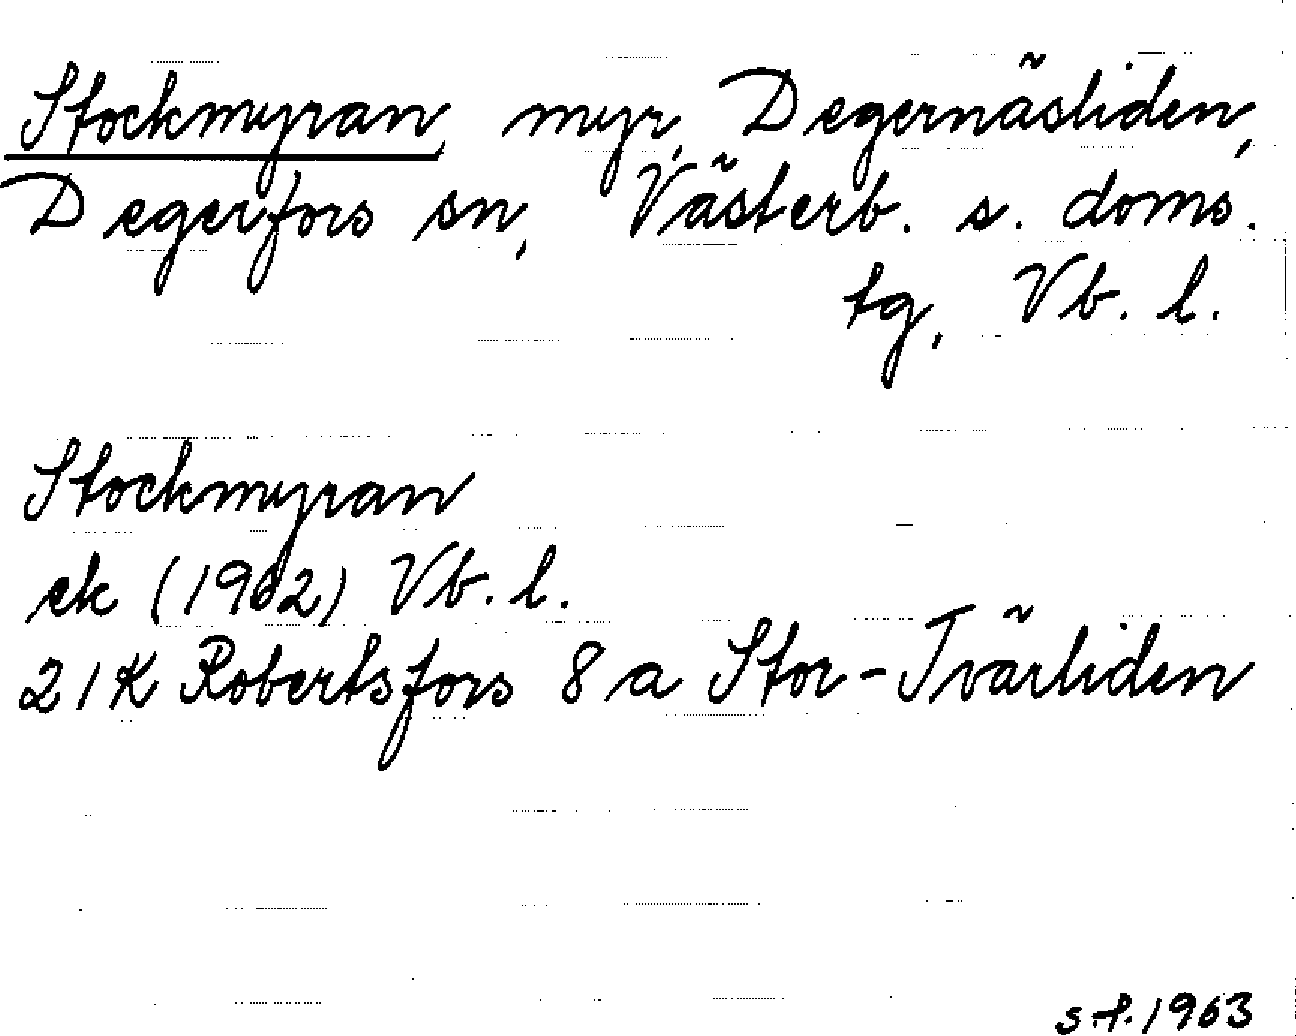 Stockmyran, myr, Degernäsliden,
Degerfors sn, Västerb. s. doms.
tg, Vb. l.
Stockmyran
ek (1962) Vb. l.
21K Robertsfors 8a Stor-Tvärliden
1963